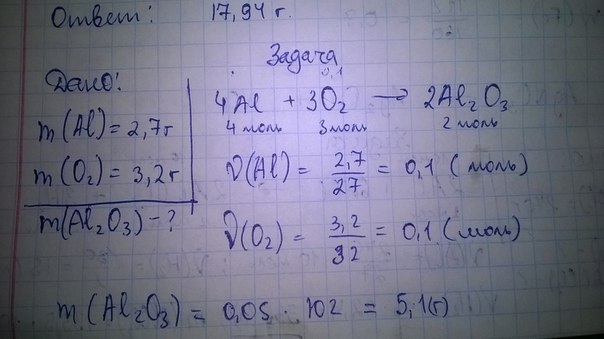 Ответ: 17,94 г.
Задача
Дано:
m(Al) = 2,7г
m(O₂) = 3,2г
m(Al₂O₃) - ?
0,1
4Al + 3O₂ → 2Al₂O₃
4 моль 3моль 2 моль
ν(Al) = 2,7/27 = 0,1 (моль)
ν(O₂) = 3,2/32 = 0,1 (моль)
m(Al₂O₃) = 0,05 · 102 = 5,1(г)